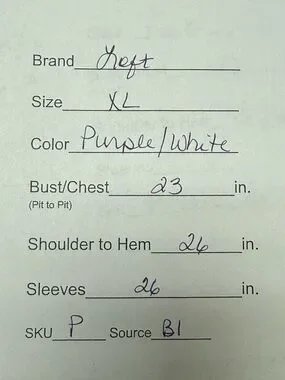 Brand Loft
Size XL
Color Purple/White
Bust/Chest 23 in.
(Pit to Pit)
Shoulder to Hem 26 in.
Sleeves 26 in.
SKU P Source B1